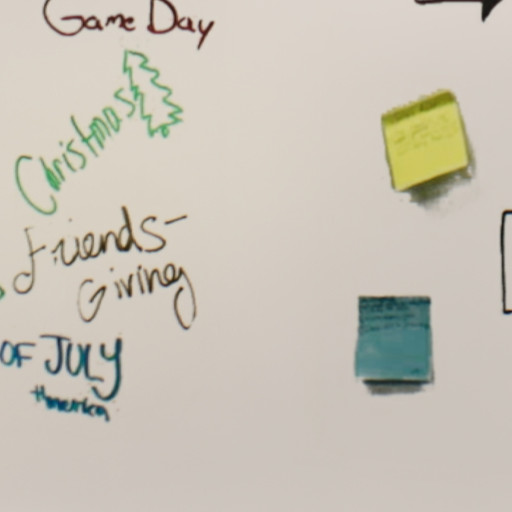 Game Day
Christmas
Friends-
Giving
OF JULY
#merica